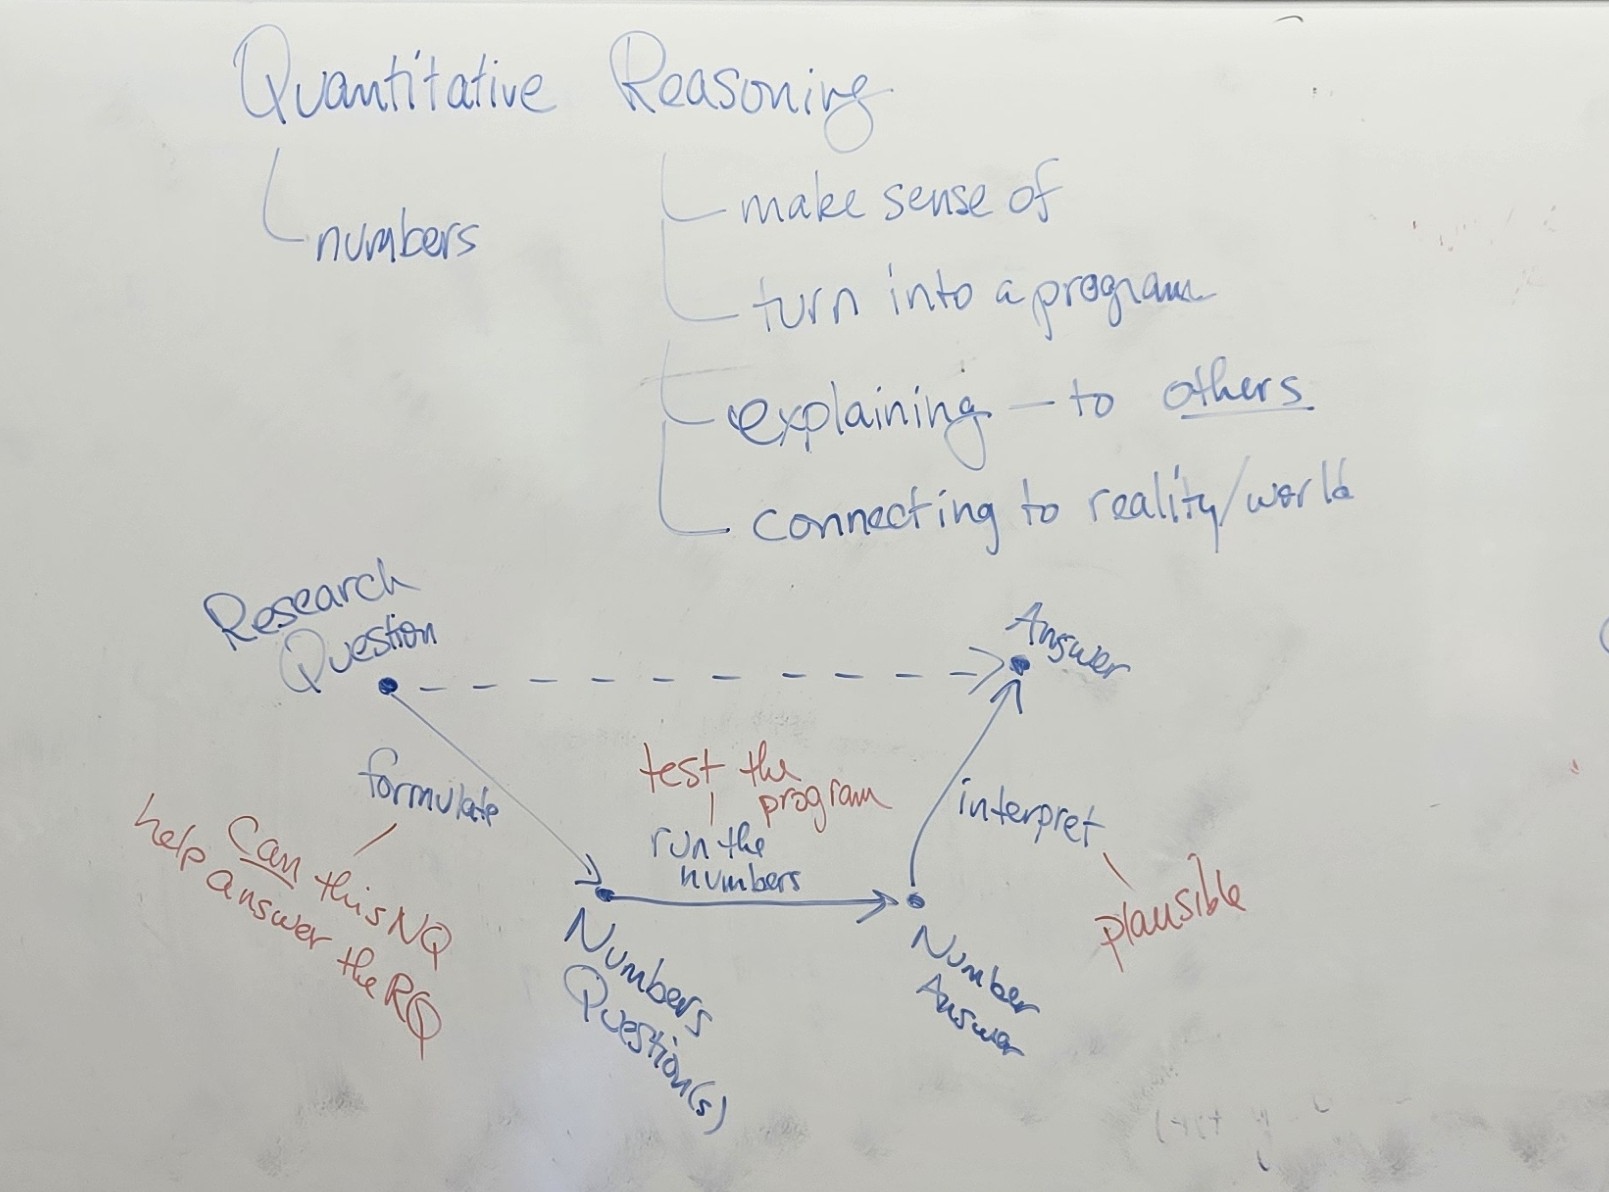 Quantitative Reasoning
numbers
make sense of
turn into a program
explaining — to others
connecting to reality/world
Research
Question
Answer
formulate
Can this NQ
help answer the RQ
test the
program
run the
numbers
interpret
plausible
Numbers
Question(s)
Number
Answer